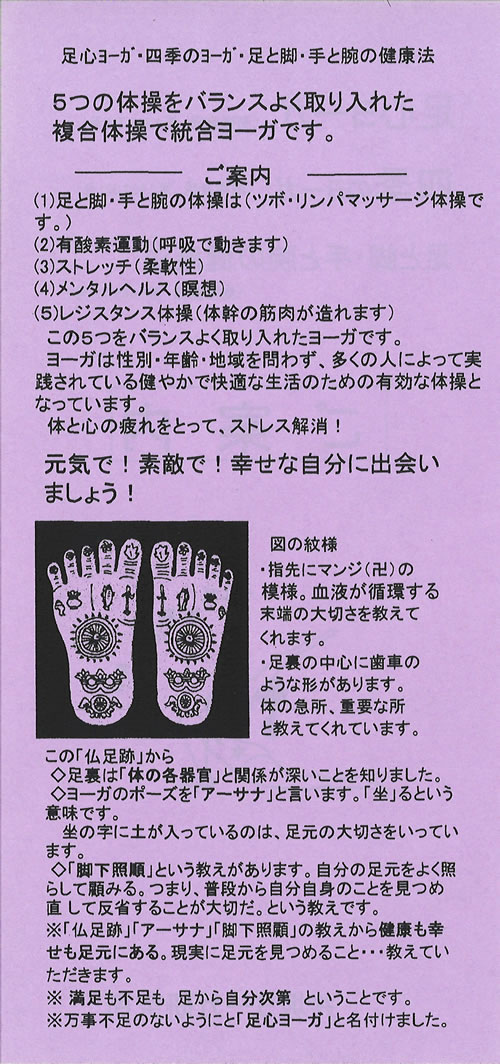 足心ヨーガ・四季のヨーガ・足と脚・手と腕の健康法
５つの体操をバランスよく取り入れた
複合体操で統合ヨーガです。
ご案内
(1)足と脚・手と腕の体操は(ツボ・リンパマッサージ体操で
す。)
(2)有酸素運動(呼吸で動きます)
(3)ストレッチ(柔軟性)
(4)メンタルヘルス(瞑想)
(5)レジスタンス体操(体幹の筋肉が造れます)
この５つをバランスよく取り入れたヨーガです。
ヨーガは性別・年齢・地域を問わず、多くの人によって実
践されている健やかで快適な生活のための有効な体操と
なっています。
体と心の疲れをとって、ストレス解消！
元気で！素敵で！幸せな自分に出会い
ましょう！
図の紋様
・指先にマンジ(卍)の
模様。血液が循環する
末端の大切さを教えて
くれます。
・足裏の中心に歯車の
ような形があります。
体の急所、重要な所
と教えてくれています。
この「仏足跡」から
◇足裏は「体の各器官」と関係が深いことを知りました。
◇ヨーガのポーズを「アーサナ」と言います。「坐」るという
意味です。
坐の字に土が入っているのは、足元の大切さをいってい
ます。
◇「脚下照順」という教えがあります。自分の足元をよく照
らして顧みる。つまり、普段から自分自身のことを見つめ
直 して反省することが大切だ。という教えです。
※「仏足跡」「アーサナ」「脚下照顧」の教えから健康も幸
せも足元にある。現実に足元を見つめること・・・教えてい
ただきます。
※ 満足も不足も 足から自分次第 ということです。
※万事不足のないようにと「足心ヨーガ」と名付けました。